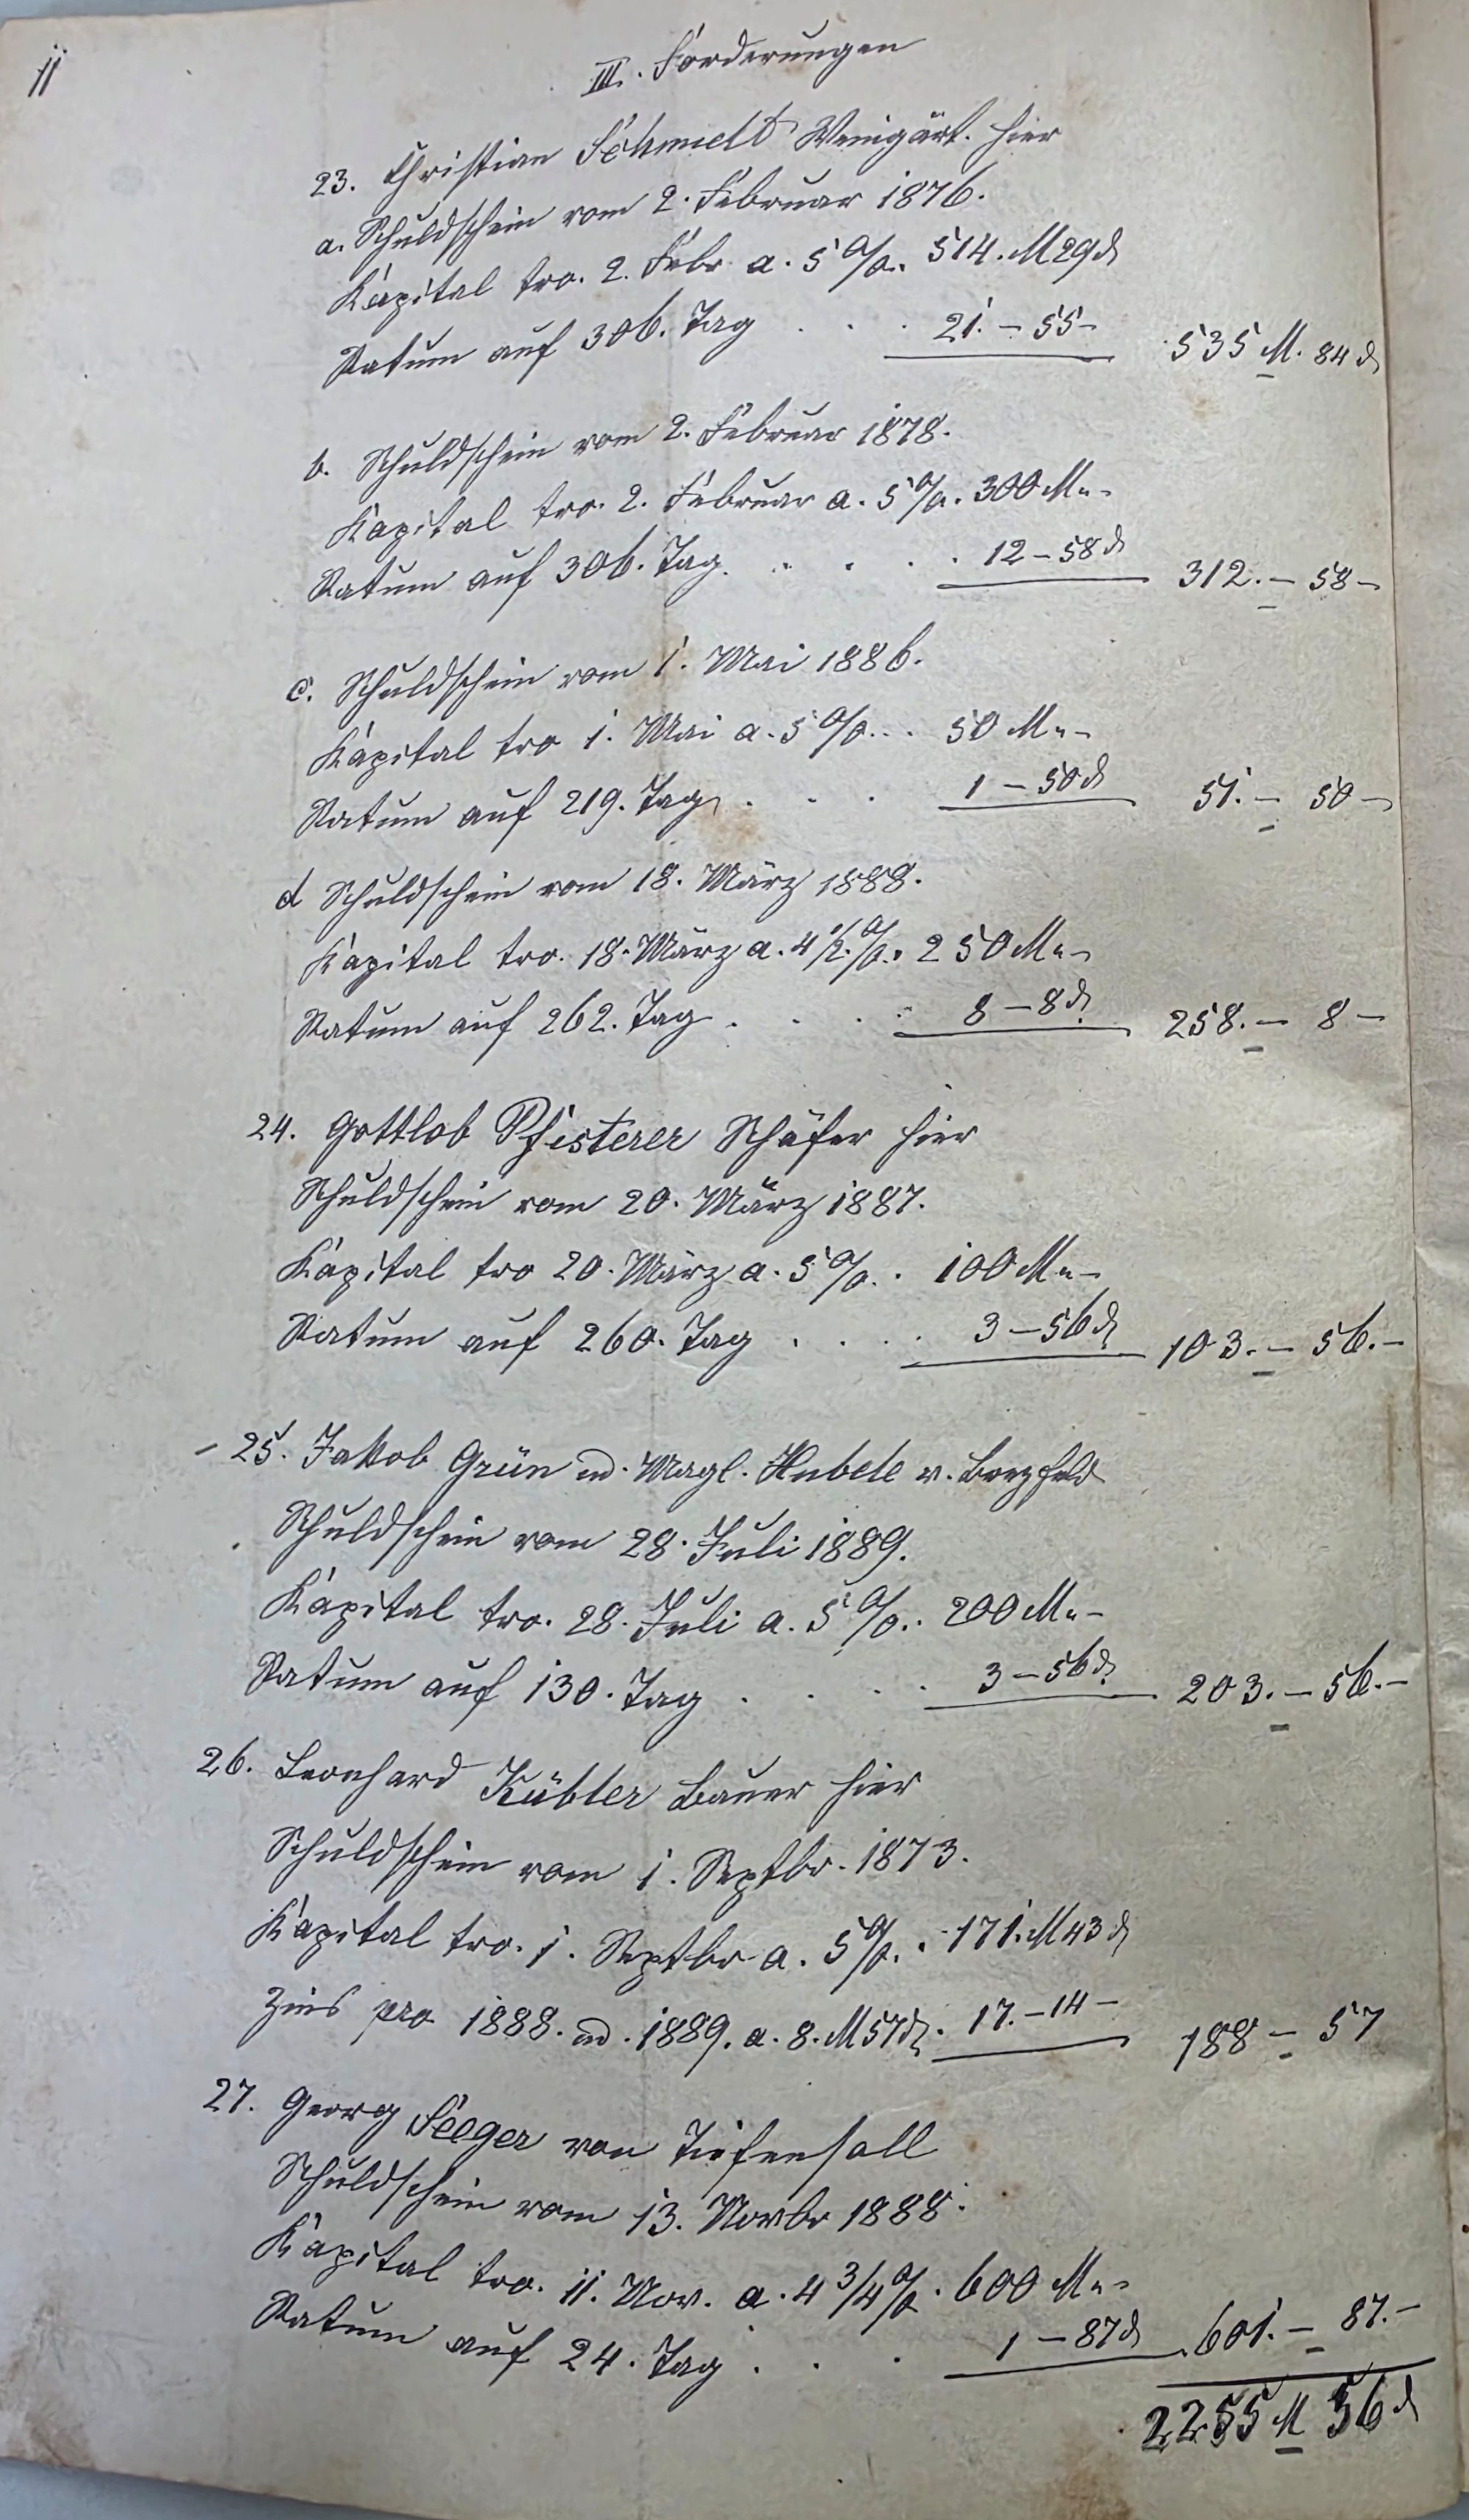 11
III. Forderungen
23. Christian Schmidt Weingärt. hier
a. Schuldschein vom 2. Februar 1876.
Kapital tro. 2. Febr. a. 5 %. 514. M 29 d
Ratum auf 306. Tag . . . 21. – 55 – 535 M. 84 d
b. Schuldschein vom 2. Februar 1878.
Kapital tro. 2. Februar a. 5 %. 300 M „ –
Ratum auf 306. Tag. . . . . 12 – 58 d 312. – 58 –
c. Schuldschein vom 1. Mai 1886.
Kapital tro 1. Mai a. 5 %. . . 50 M „ –
Ratum auf 219. Tag . . . 1 – 50 d 51. – 50 –
d Schuldschein vom 18. März 1888.
Kapital tro. 18. März a. 4 1/2. %. 250 M „ –
Ratum auf 262. Tag . . . . 8 – 8 d 258. – 8 –
24. Gottlob Pfisterer Schäfer hier
Schuldschein vom 20. März 1887.
Kapital tro 20. März a. 5 %. . 100 M „ –
Ratum auf 260. Tag . . . . 3 – 56 d 103. – 56. –
– 25. Jakob Grün u. Magl. Hubele v.
Schuldschein vom 28. Juli 1889.
Kapital tro. 28. Juli a. 5 %. . 200 M „ –
Ratum auf 130. Tag . . . . 3 – 56 d 203. – 56. –
26. Leonhard Kübler Bauer hier
Schuldschein vom 1. Septbr. 1873.
Kapital tro. 1. Septbr a. 5 %. . 171. M 43 d
Zins pro 1888. u. 1889. a. 8. M 57 d. 17. – 14 – 188 – 57
27. Georg Seeger von Tiefensall
Schuldschein vom 13. Novbr 1888.
Kapital tro. 11. Nov. a. 4 3/4 %. 600 M „ –
Ratum auf 24. Tag . . . 1 – 87 d 601. – 87. –
2255 M 56 d